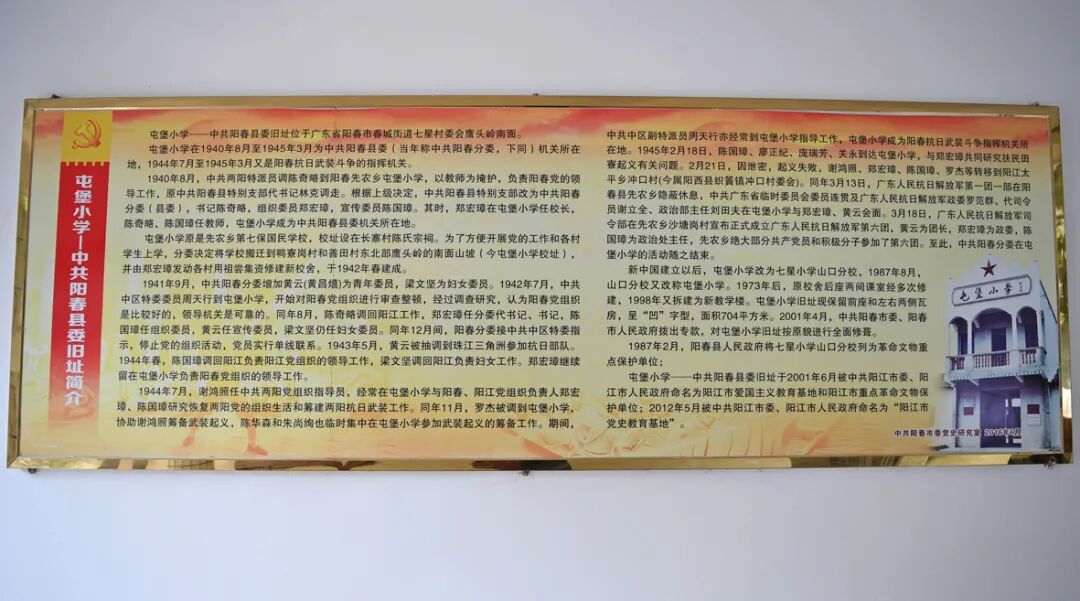 屯堡小学—中共阳春县委旧址简介
屯堡小学——中共阳春县委旧址位于广东省阳春市春城街道七星村委会鹰头岭南面。
屯堡小学在1940年8月至1945年3月为中共阳春县委（当年称中共阳春分委，下同）机关所在
地，1944年7月至1945年3月又是阳春抗日武装斗争的指挥机关。
1940年8月，中共两阳特派员调陈奇略到阳春先农乡屯堡小学，以教师为掩护，负责阳春党的领
导工作，原中共阳春县特别支部代书记林克调走。根据上级决定，中共阳春县特别支部改为中共阳春
分委（县委），书记陈奇略，组织委员郑宏璋，宣传委员陈国璋。其时，郑宏璋在屯堡小学任校长，
陈奇略、陈国璋任教师，屯堡小学成为中共阳春县委机关所在地。
屯堡小学原是先农乡第七保国民学校，校址设在长寨村陈氏宗祠。为了方便开展党的工作和各村
学生上学，分委决定将学校搬迁到鸭寮岗村和善田村东北部鹰头岭的南面山坡（今屯堡小学校址），
并由郑宏璋发动各村用祖尝集资修建新校舍，于1942年春建成。
1941年9月，中共阳春分委增加黄云(黄昌熺)为青年委员，梁文坚为妇女委员。1942年7月，中共
中区特委委员周天行到屯堡小学，开始对阳春党组织进行审查整顿，经过调查研究，认为阳春党组织
是比较好的，领导机关是可靠的。同年8月，陈奇略调回阳江工作，郑宏璋任分委代书记、书记，陈
国璋任组织委员，黄云任宣传委员，梁文坚仍任妇女委员。同年12月间，阳春分委接中共中区特委指
示，停止党的组织活动，党员实行单线联系。1943年5月，黄云被抽调到珠江三角洲参加抗日部队。
1944年春，陈国璋调回阳江负责阳江党组织的领导工作，梁文坚调回阳江负责妇女工作。郑宏璋继续
留在屯堡小学负责阳春党组织的领导工作。
1944年7月，谢鸿照任中共两阳党组织指导员，经常在屯堡小学与阳春、阳江党组织负责人郑宏
璋、陈国璋研究恢复两阳党的组织生活和筹建两阳抗日武装工作。同年11月，罗杰被调到屯堡小学，
协助谢鸿照筹备武装起义，陈华森和朱尚绚也临时集中在屯堡小学参加武装起义的筹备工作。期间，
中共中区副特派员周天行亦经常到屯堡小学指导工作，屯堡小学成为阳春抗日武装斗争指挥机关所
在地。1945年2月18日，陈国璋、廖正纪、庞瑞芳、关永到达屯堡小学，与郑宏璋共同研究扶民田
寮起义有关问题。2月21日，因泄密，起义失败，谢鸿照、郑宏璋、陈国璋、罗杰等转移到阳江太
平乡冲口村(今属阳西县织篢镇冲口村委会)。同年3月13日，广东人民抗日解放军第一团一部在阳
春县先农乡隐蔽休息，中共广东省临时委员会委员连贯及广东人民抗日解放军政委罗范群、代司令
员谢立全、政治部主任刘田夫在屯堡小学与郑宏璋、黄云会面。3月18日，广东人民抗日解放军司
令部在先农乡沙塘岗村宣布正式成立广东人民抗日解放军第六团，黄云为团长，郑宏璋为政委，陈
国璋为政治处主任，先农乡绝大部分共产党员和积极分子参加了第六团。至此，中共阳春分委在屯
堡小学的活动随之结束。
新中国建立以后，屯堡小学改为七星小学山口分校，1987年8月，
山口分校又改称屯堡小学。1973年后，原校舍后座两间课室经多次修
建，1998年又拆建为新教学楼。屯堡小学旧址现保留前座和左右两侧瓦
房，呈“凹”字型，面积704平方米。2001年4月，中共阳春市委、阳春
市人民政府拨出专款，对屯堡小学旧址按原貌进行全面修葺。
1987年2月，阳春县人民政府将七星小学山口分校列为革命文物重
点保护单位；
屯堡小学——中共阳春县委旧址于2001年6月被中共阳江市委、阳
江市人民政府命名为阳江市爱国主义教育基地和阳江市重点革命文物保
护单位；2012年5月被中共阳江市委、阳江市人民政府命名为“阳江市
党史教育基地”。
屯堡小学
中共阳春市委党史研究室 2016年6月